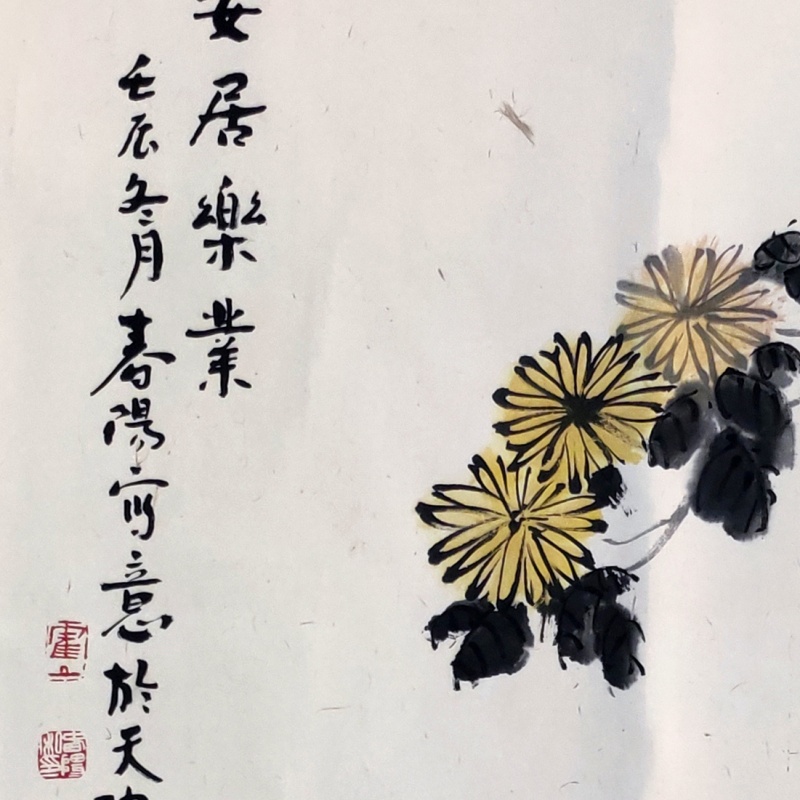 安居樂業
壬辰冬月春陽寫意於天